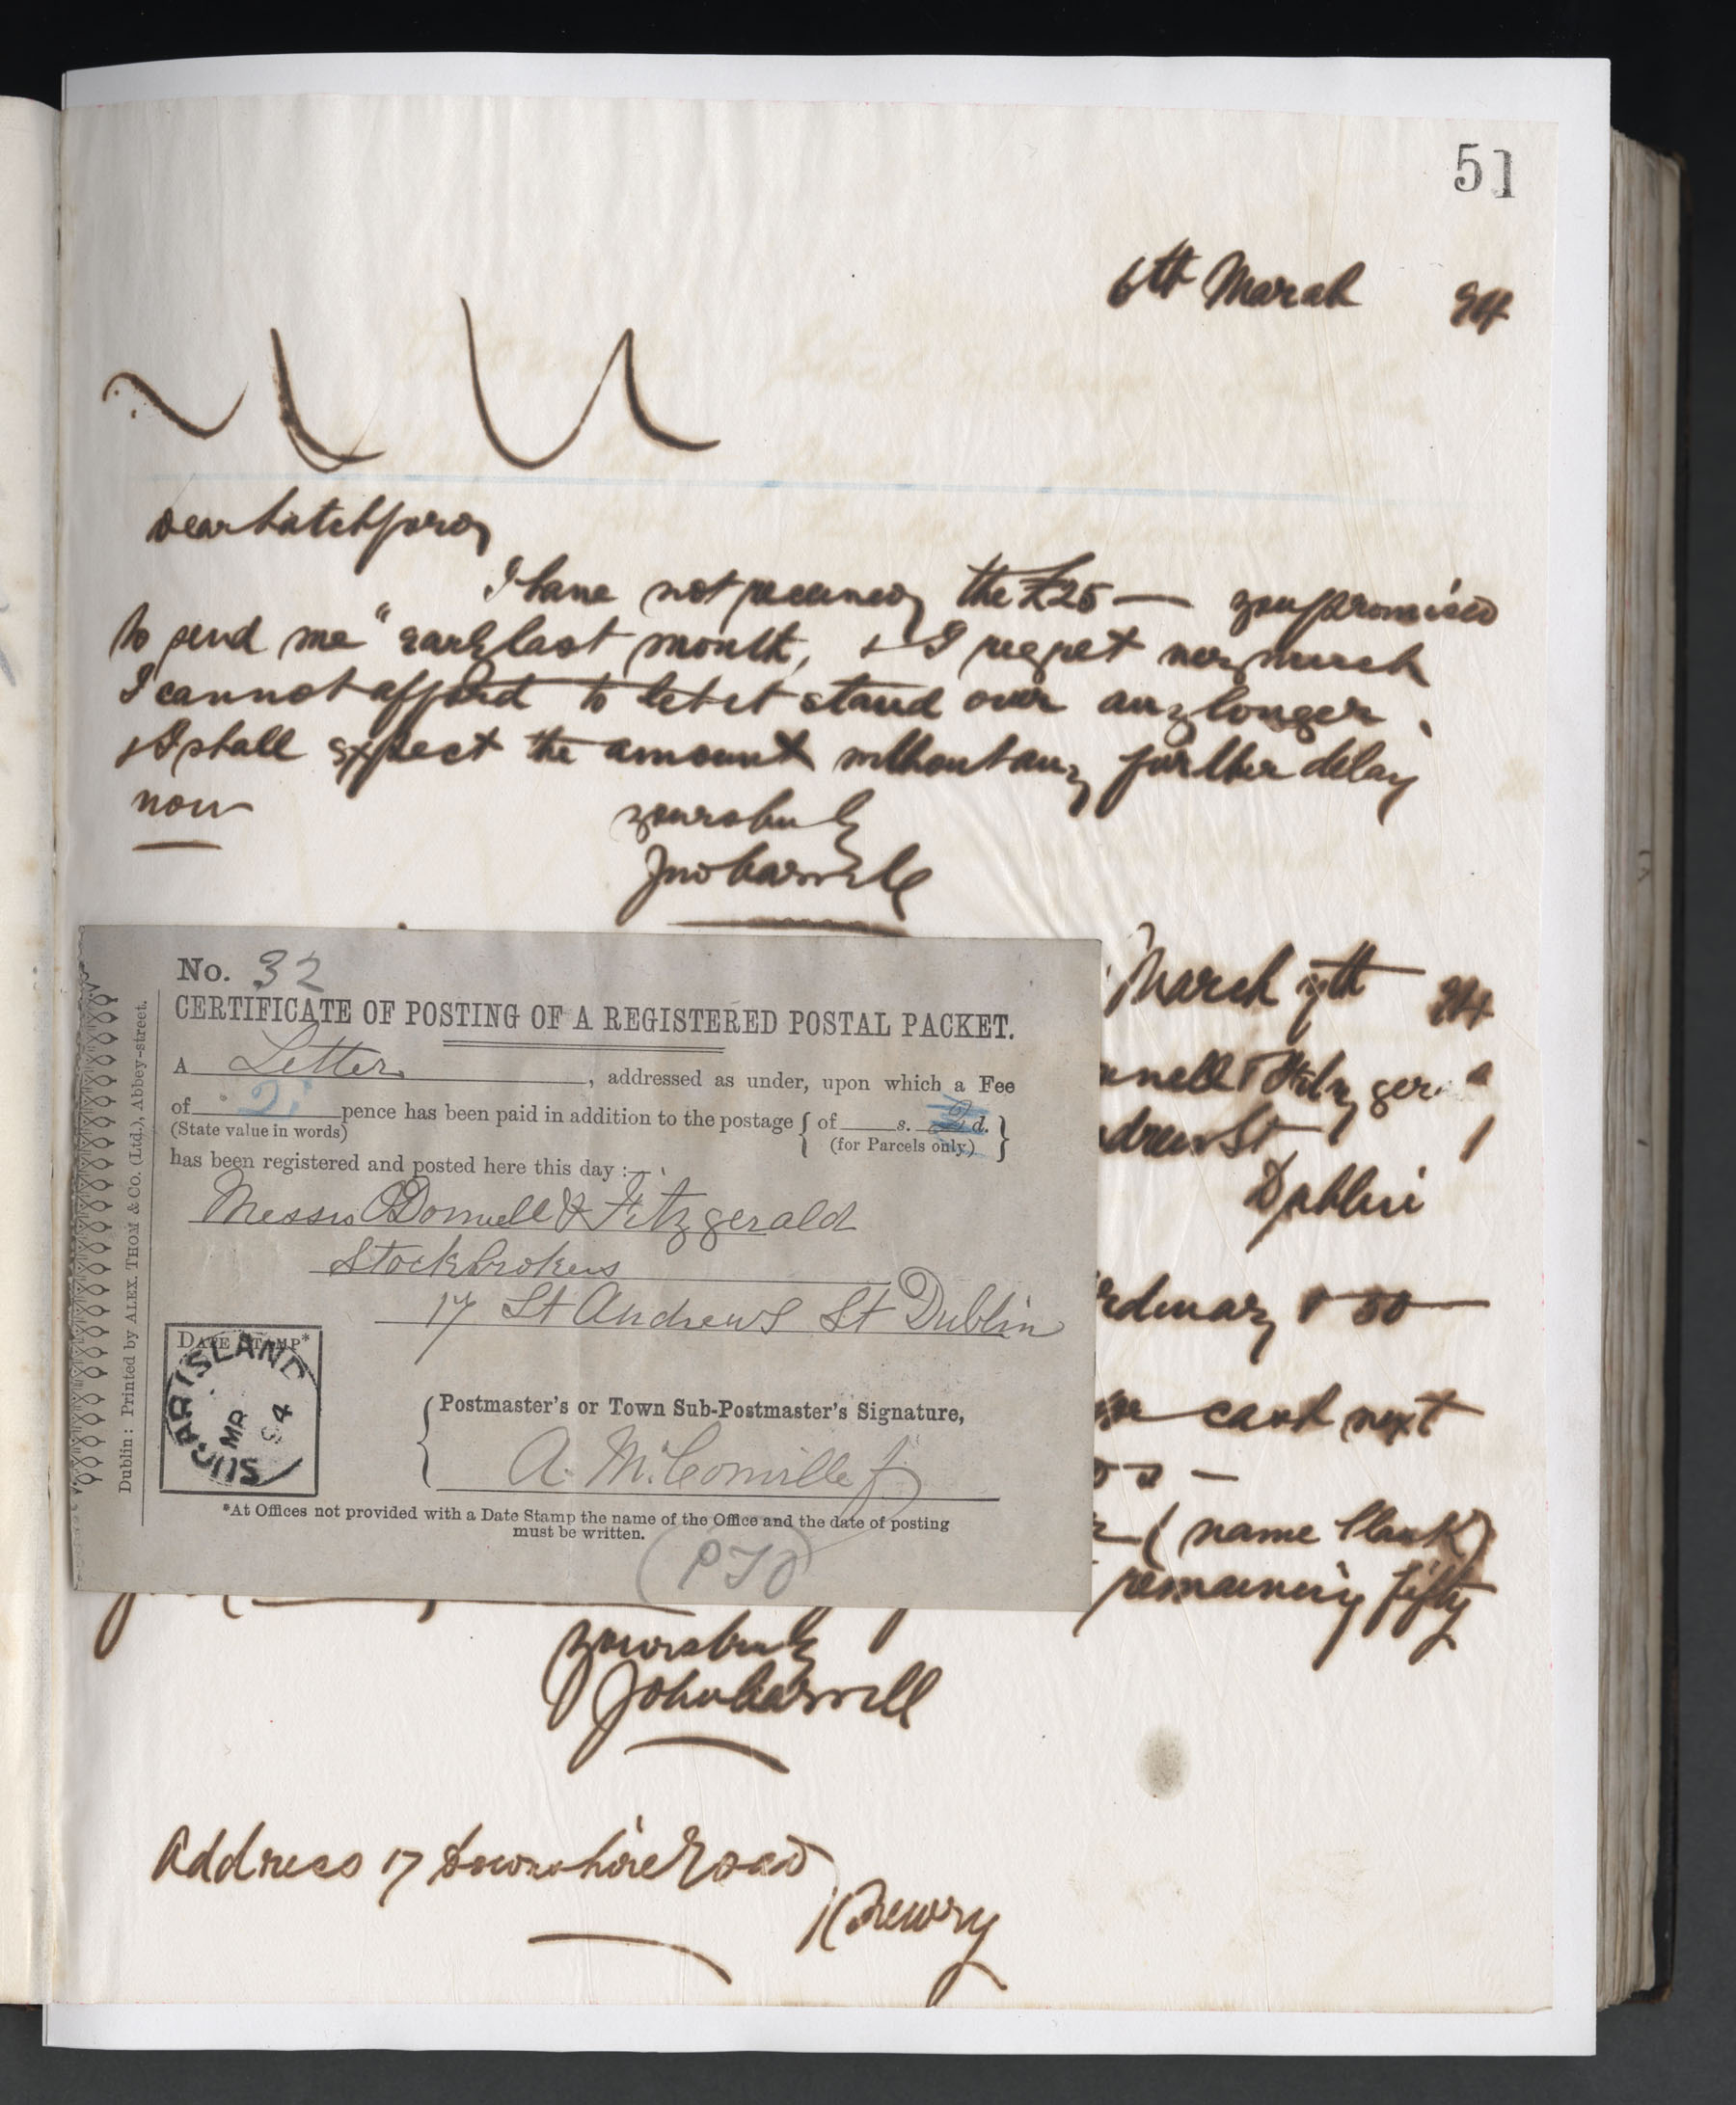 51
6th March 94
Dear
I have not received the £25 — you promised
to send me "early last month, & I regret very much
I cannot afford to let it stand over any longer.
& I shall expect the amount without any further delay
now
yours truly
Jno Carvill
March 7th 94
Dublin
No. 32
CERTIFICATE OF POSTING OF A REGISTERED POSTAL PACKET.
A Letter, addressed as under, upon which a Fee
of 2 pence has been paid in addition to the postage { of s. 2 d. }
(State value in words) (for Parcels only.)
has been registered and posted here this day :—
Messrs O'Donnell & Fitzgerald
Stockbrokers
17 St Andrews St Dublin
DATE STAMP*
SUGARISLAND
MR
94
Postmaster's or Town Sub-Postmaster's Signature,
A. McConville
*At Offices not provided with a Date Stamp the name of the Office and the date of posting
must be written.
(PTO)
Dublin: Printed by ALEX. THOM & Co. (Ltd.), Abbey-street.
drew St
rdinary 50
next
(name Clark)
remaining fifty
yours truly
John Carvill
Address 17 Downshire Road
Newry